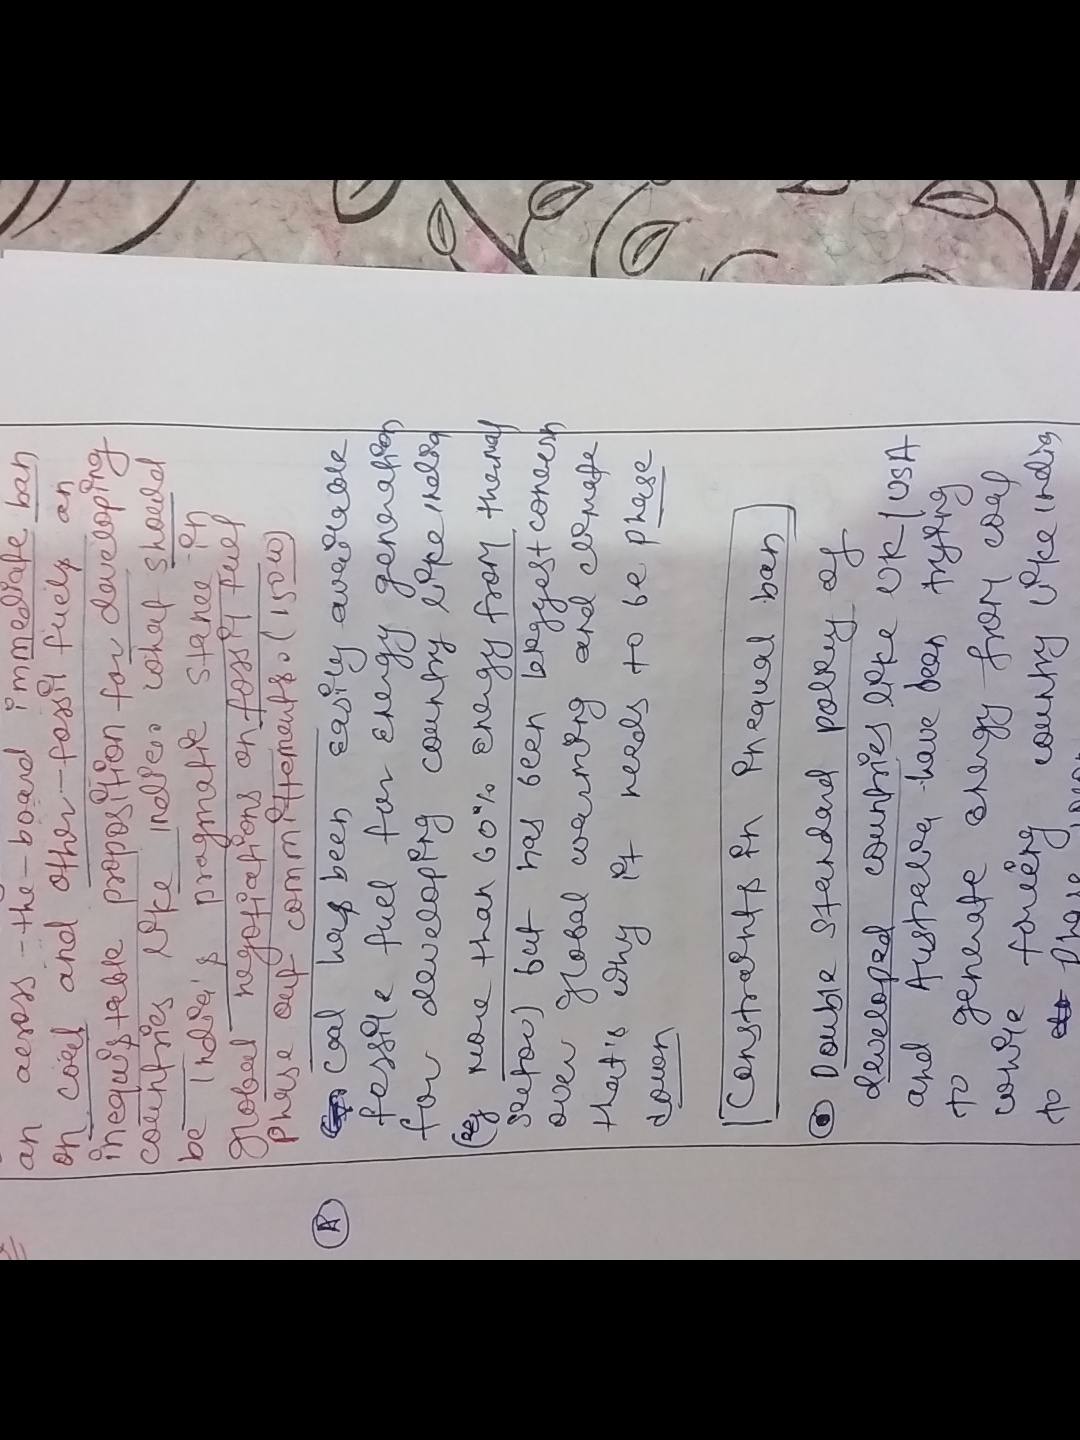 an across-the-board immediate ban
on coal and other fossil fuels an
inequistable proposition for developing
countries like india. what should
be India's pragmatic stance in
global negotiations on fossil fuel
phase out committements. (150W)
A
Coal has been easily available
fossile fuel for energy generation
for developing country like india
( more than 60% energy from thermal
sector) but has been largest concern
over global warming and climate
that's why it needs to be phase
down
Constraints in inequal ban
Double standard policy of
developed countries like UK/USA
and Australia have been trying
to generate energy from coal
while country like india
to phase down